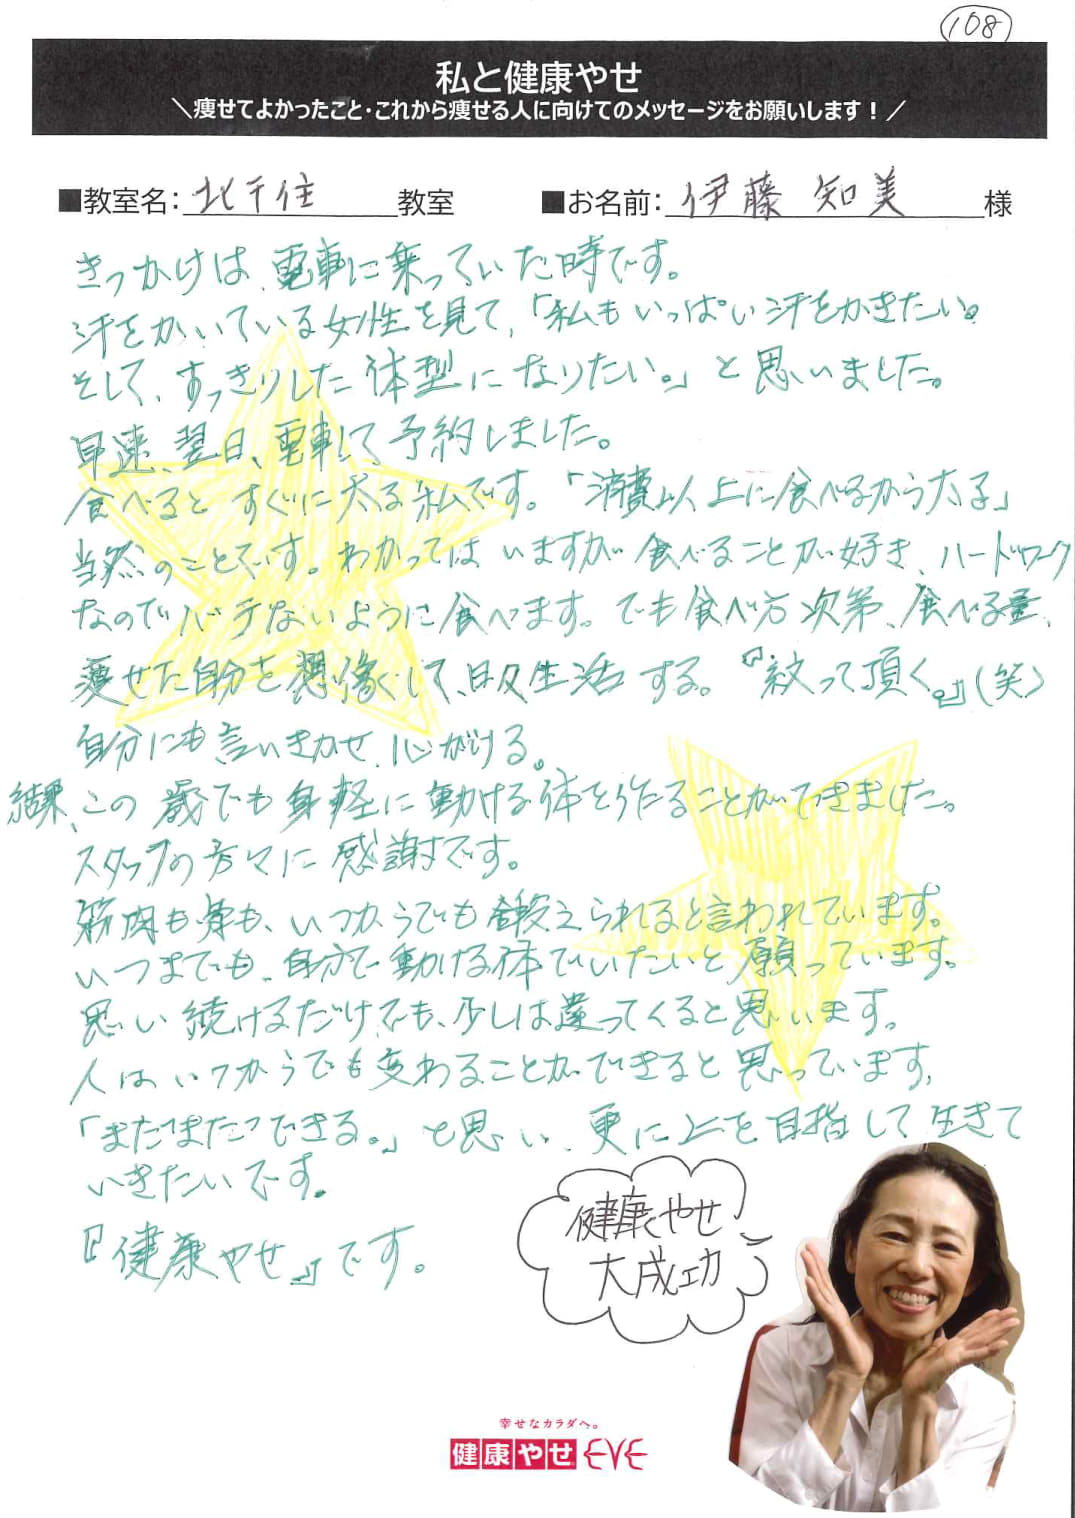 108
私と健康やせ
＼痩せてよかったこと・これから痩せる人に向けてのメッセージをお願いします！／
■教室名：北千住教室 ■お名前：伊藤 知美 様
きっかけは、電車に乗っていた時です。
汗をかいている女性を見て、「私もいっぱい汗をかきたい。
そして、すっきりした体型になりたい。」と思いました。
早速、翌日、電車して予約しました。
食べるとすぐに太る私です。「消費以上に食べるから太る」
当然のことです。わかってはいますが食べることが好き、ハードワーク
なのでバテないように食べます。でも食べ方次第、食べる量、
痩せた自分を想像して、日々生活する。『絞って頂く。』（笑）
自分にも言いきかせ、心がける。
結果、この歳でも身軽に動ける体を作ることができました。
スタッフの方々に感謝です。
筋肉も骨も、いつからでも鍛えられると言われています。
いつまでも、自分で動ける体でいたいと願っています。
思い続けるだけでも、少しは違ってくると思います。
人はいつからでも変わることができると思っています。
「まだまだできる。」と思い、更に上を目指して生きて
いきたいです。
『健康やせ』です。
健康やせ
大成功
幸せなカラダへ。
健康やせEVE